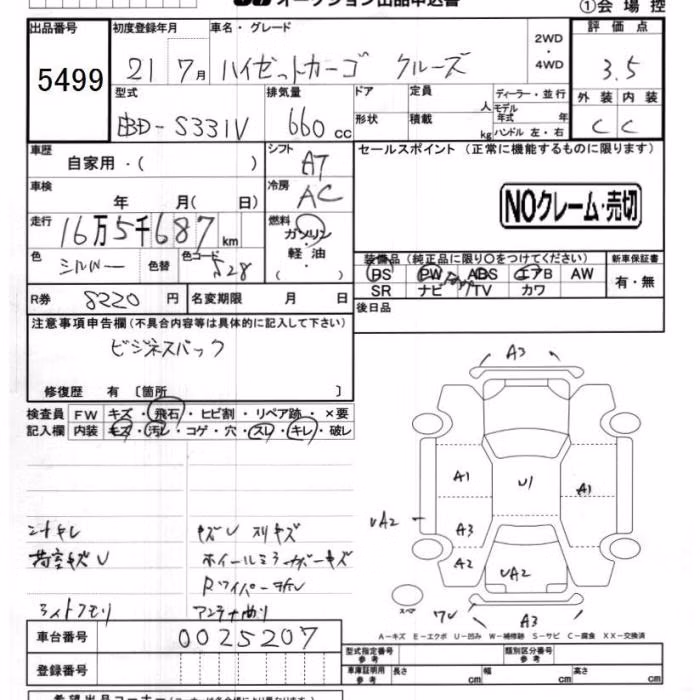 オークション出品申込書
①会 場 控
出品番号 初度登録年月 車名・グレード 2WD ・ 4WD 評 価 点
5499 21 7月 ハイゼットカーゴ クルーズ 3.5
型式 排気量 ドア 定員 人 ディーラー・並行 外 装 内 装
EBD-S331V 660 cc 形状 積載 kg モデル年式 年 C C
ハンドル 左・右
車歴 シフト セールスポイント (正常に機能するものに限ります)
自家用・( ) AT
車検 冷房 NOクレーム・売切
年 月( 日) AC
走行 16万5千687km 燃料
ガソリン・
軽 油
色 シルバー 色替 色コード S28 装備品 (純正品に限り○をつけてください) 新車保証書
PS PW ABS エアB AW 有・無
R券 8220 円 名変期限 月 日 SR ナビ TV カワ
注意事項申告欄(不具合内容等は具体的に記入して下さい) 後日品
ビジネスパック
修復歴 有 〔箇所 〕
検査員 FW キズ・飛石・ヒビ割・リペア跡・×要
記入欄 内装 キズ・汚レ・コゲ・穴・スレ・キレ・破レ
A3
A1 U1 A1
UA2 A3
A2 UA2
シートキレ キズU スリキズ
荷室キズU ホイールミラーカバーキズ
Rワイパー
ライトクモリ アンテナ曲り
スペア
A3
A-キズ E-エクボ U-凹み W-補修跡 S-サビ C-腐食 XX-交換済
車台番号 0025207
登録番号
型式指定番号 参 考 類別区分番号 参 考
車庫証明用 参 考 長さ cm 幅 cm 高さ cm
希望出品コーナー